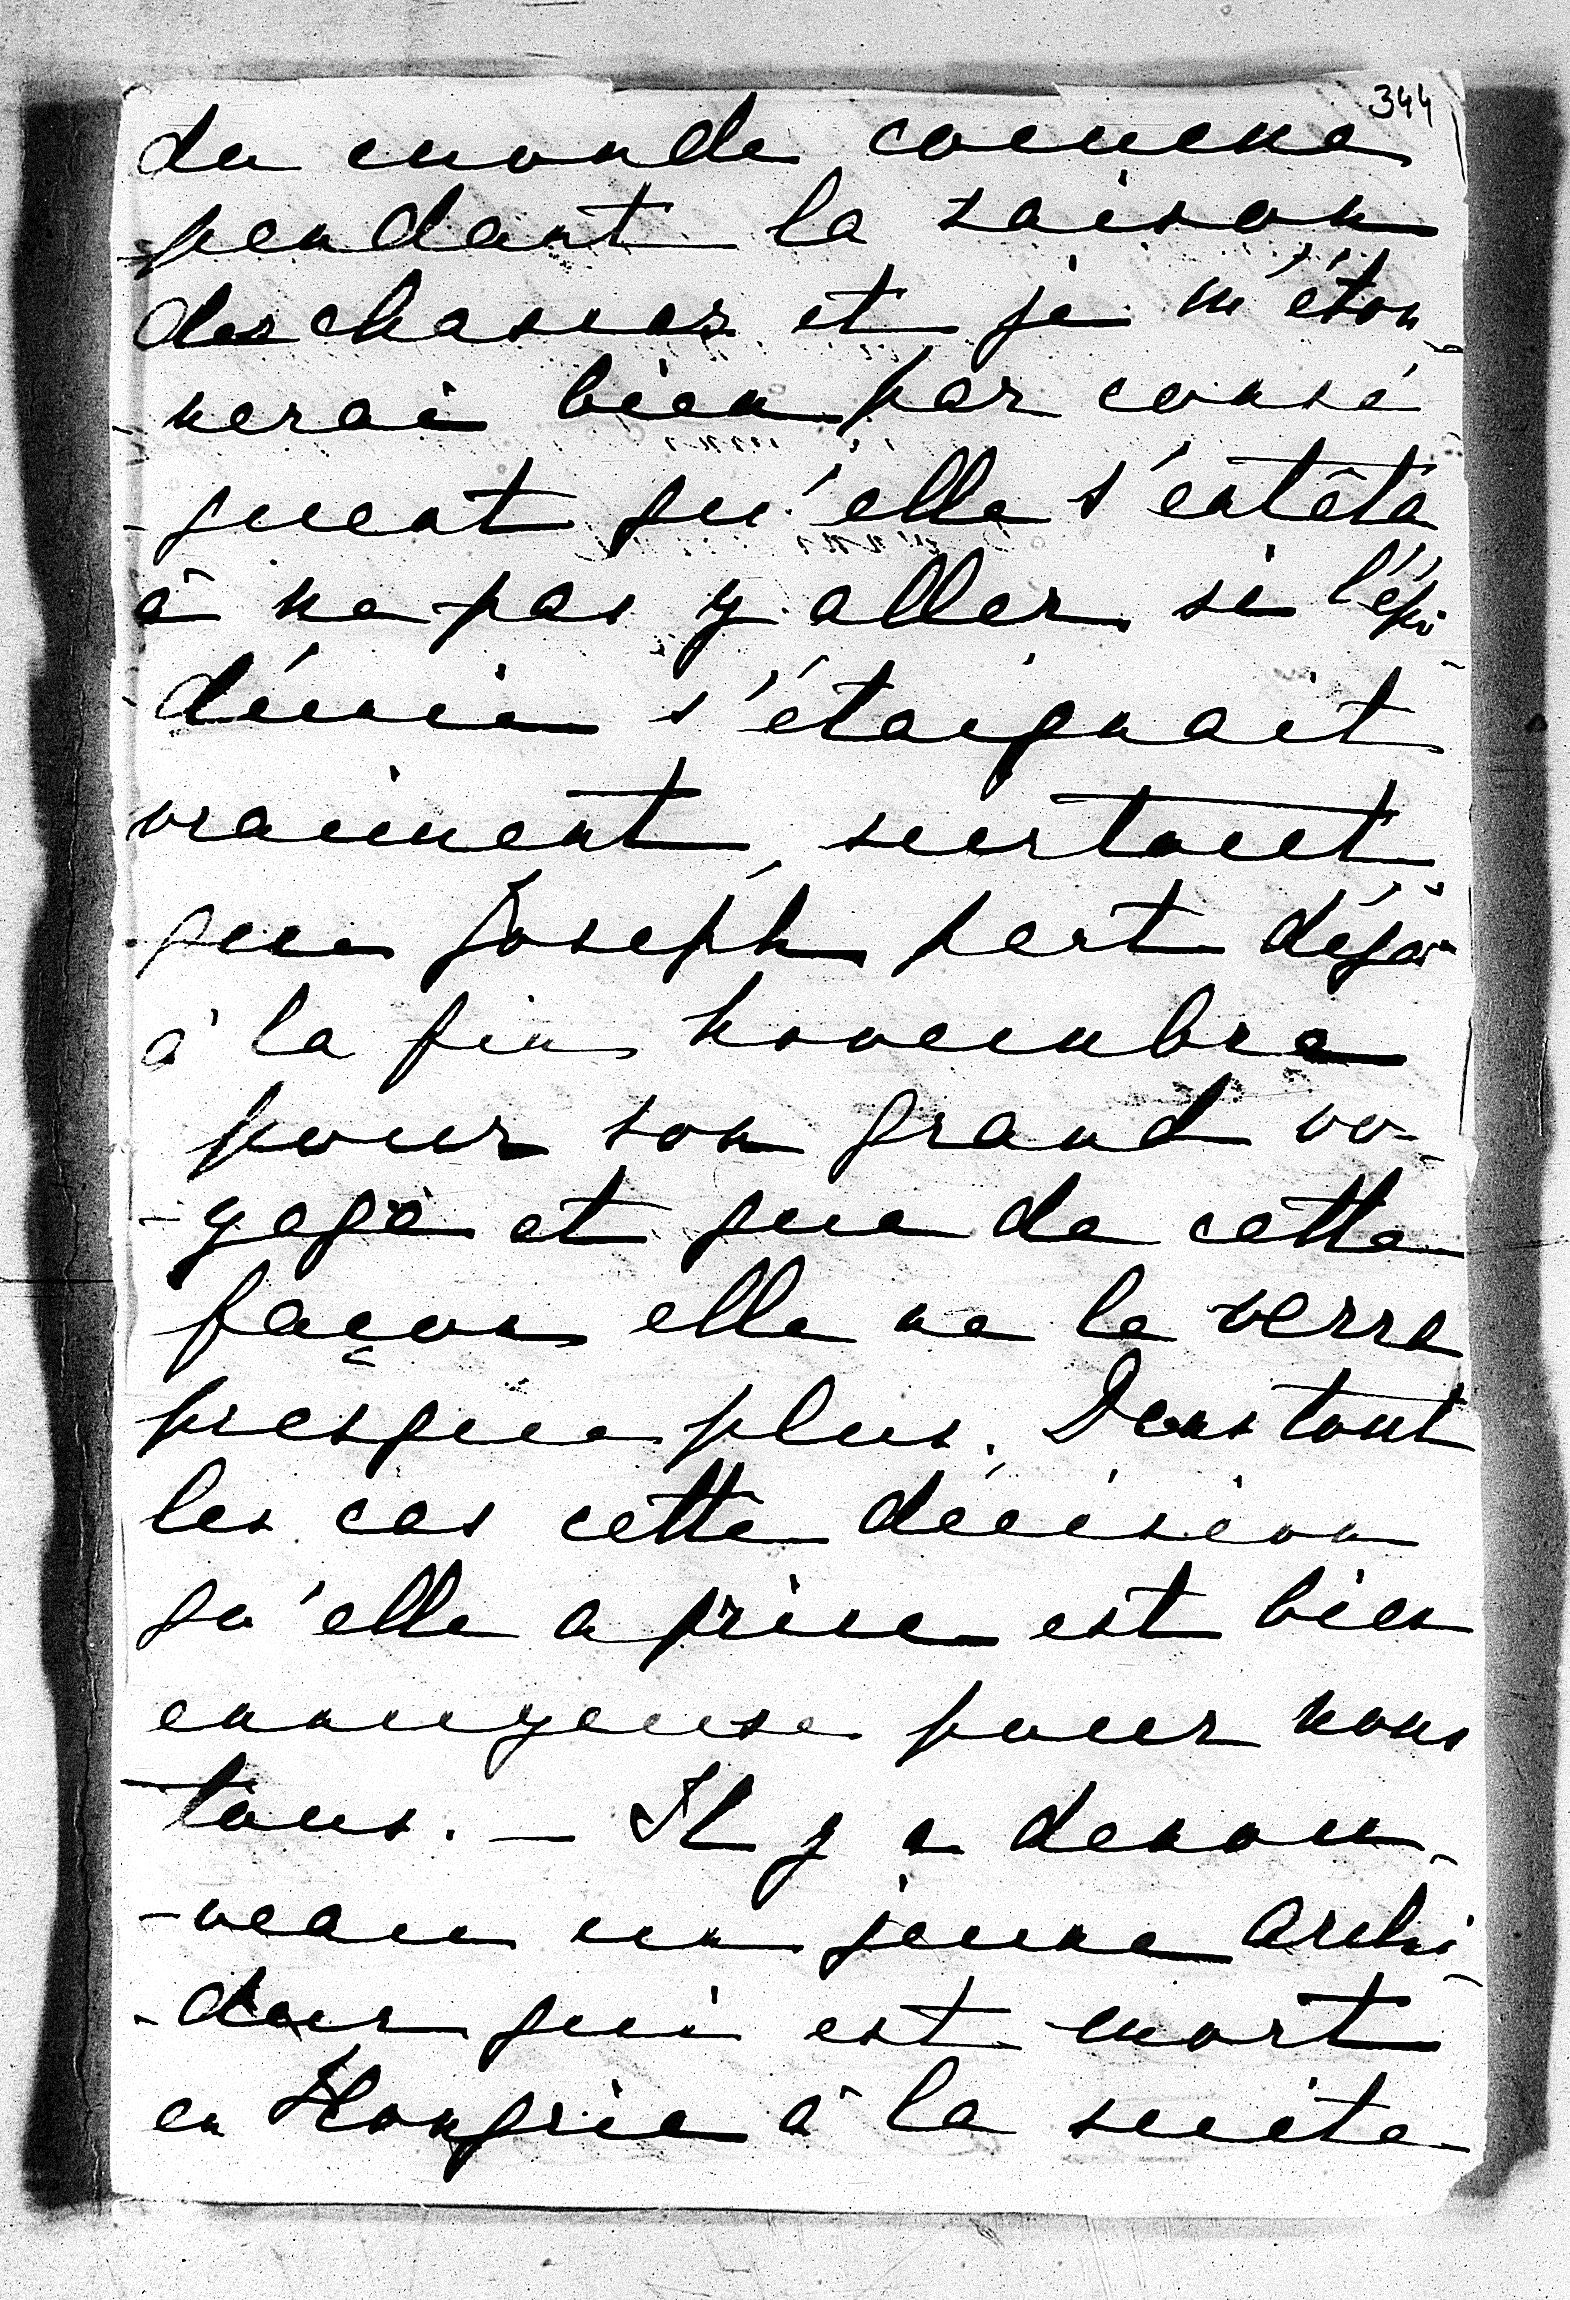 344
du monde comme
pendant la saison
des chasses et je m'éton-
-nerai bien par consé-
-quent qu'elle s'entêta
à ne pas y aller si l'épi-
-démie s'étaignait
vraiment, surtout
que Joseph part déjà
à la fin novembre
pour son grand vo-
-yage et que de cette
façon elle ne le verra
presque plus. Dans tout
les cas cette décision
qu'elle a prise est bien
ennuyeuse pour nous
tous. — Il y a denou-
-veau un jeune archi-
-duc qui est mort
en Hongrie à la suite